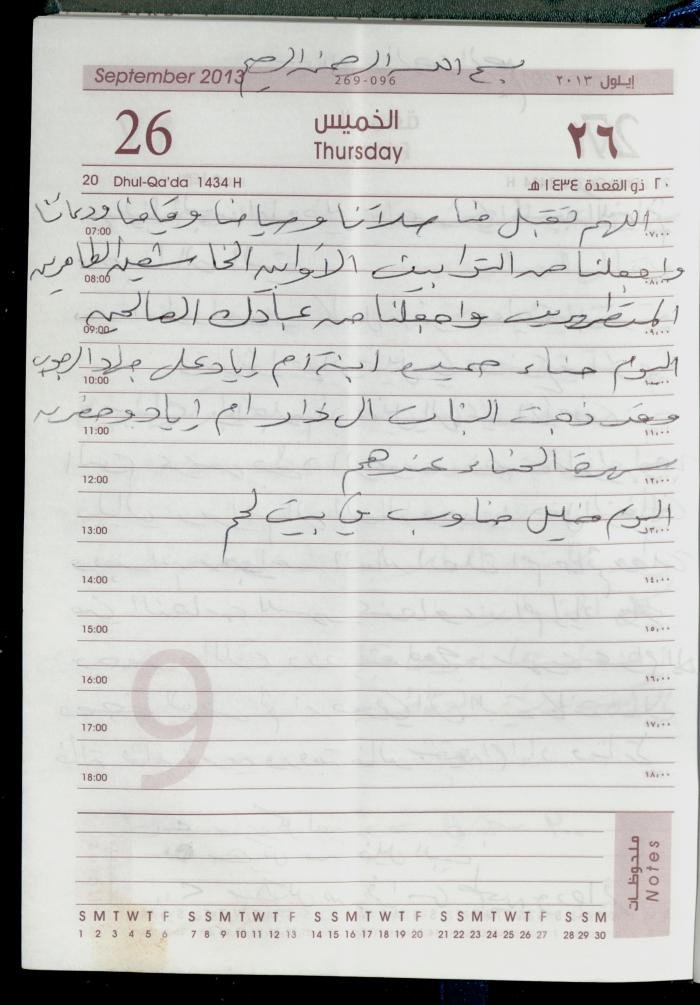 بسم الله الرحمن الرحيم
September 2013
269-096
إيلول ٢٠١٣
26
الخميس
Thursday
٢٦
20 Dhul-Qa'da 1434 H
٢٠ ذو القعدة ١٤٣٤ هـ
اللهم تقبل منا صلاتنا وصيامنا وقيامنا ودعائنا
07:00 ٠٧,٠٠
واجعلنا من التوابين الأوابين الخاشعين الطاهرين
08:00 ٠٨,٠٠
المتطهرين واجعلنا من عبادك الصالحين
09:00 ٠٩,٠٠
اليوم حناء ابنة ام اياد على
10:00 ١٠,٠٠
وقد ذهبت البنات ال دار ام اياد
11:00 ١١,٠٠
سهرة الحناء عندهم
12:00 ١٢,٠٠
اليوم في بيت لحم
13:00 ١٣,٠٠
14:00 ١٤,٠٠
15:00 ١٥,٠٠
16:00 ١٦,٠٠
17:00 ١٧,٠٠
18:00 ١٨,٠٠
9
ملحوظات
Notes
S M T W T F S S M T W T F S S M T W T F S S M T W T F S S M
1 2 3 4 5 6 7 8 9 10 11 12 13 14 15 16 17 18 19 20 21 22 23 24 25 26 27 28 29 30